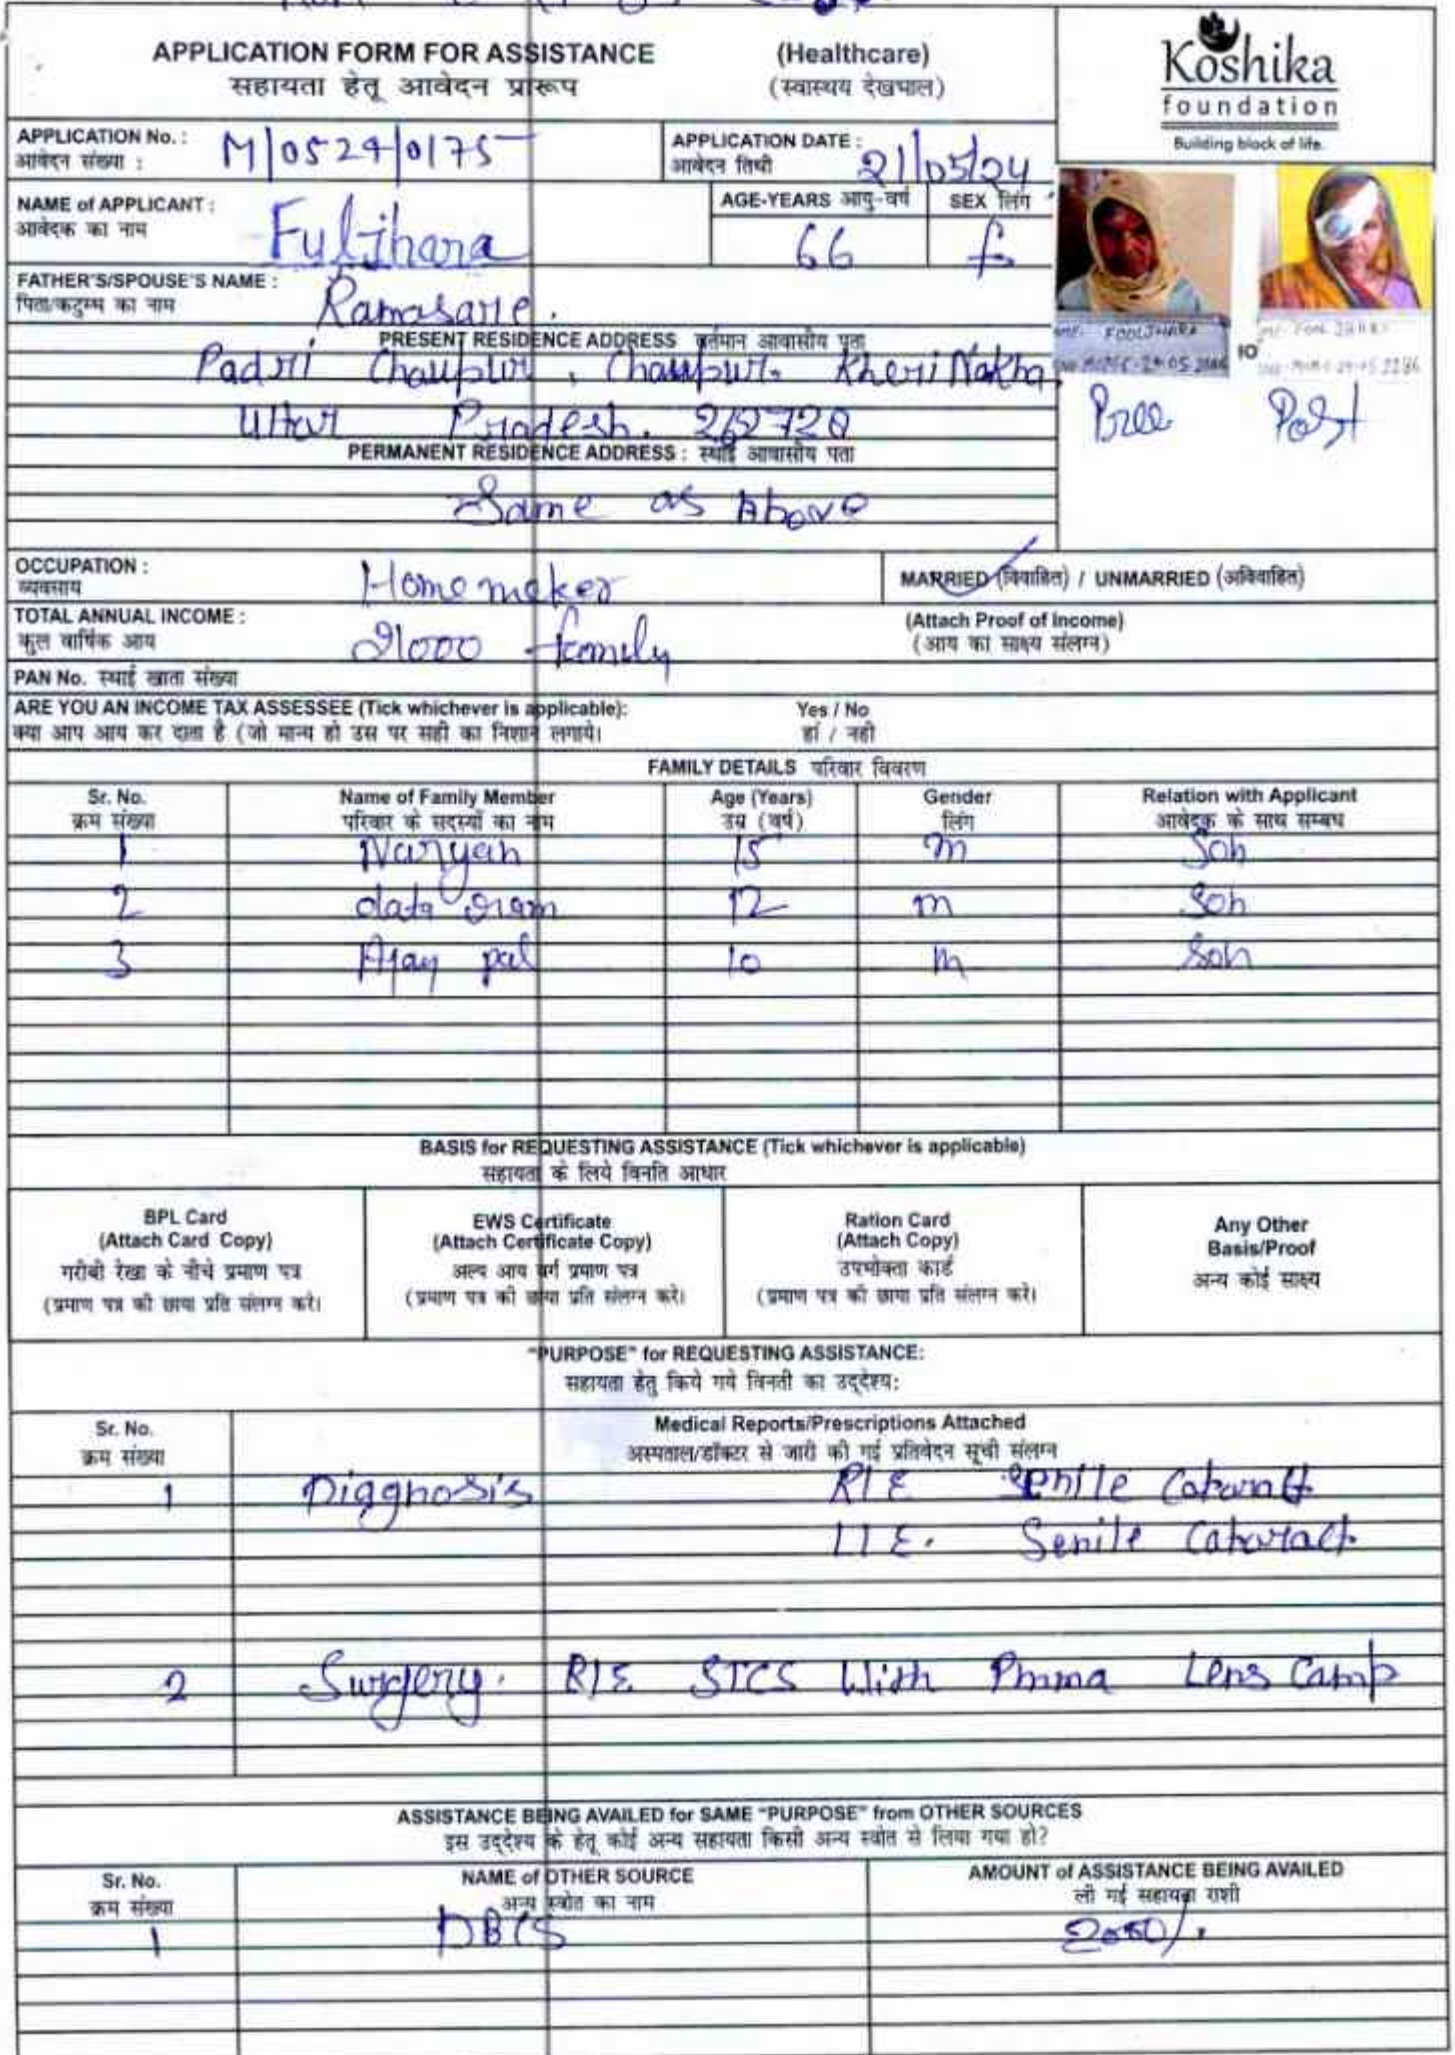 APPLICATION FORM FOR ASSISTANCE (Healthcare)
सहायता हेतू आवेदन प्रारूप (स्वास्थय देखभाल)
Koshika
foundation
Building block of life.
APPLICATION No. : M/0524/0175
आवेदन संख्या :
APPLICATION DATE : 21/05/24
आवेदन तिथी
NAME of APPLICANT : Fuljhara
आवेदक का नाम
AGE-YEARS आयु-वर्ष SEX लिंग
66 f
FATHER'S/SPOUSE'S NAME : Ramasare.
पिता/कटुम्ब का नाम
PRESENT RESIDENCE ADDRESS वर्तमान आवासीय पता
Padri Chaupur, Chaupur, Kheri Nakha
Uttar Pradesh. 262728
Pree Post
PERMANENT RESIDENCE ADDRESS : स्थाई आवासीय पता
Same as Above
OCCUPATION : Homemaker
व्यवसाय
MARRIED (विवाहित) / UNMARRIED (अविवाहित)
TOTAL ANNUAL INCOME : 21000 family
कुल वार्षिक आय
(Attach Proof of Income)
(आय का साक्ष्य संलग्न)
PAN No. स्थाई खाता संख्या
ARE YOU AN INCOME TAX ASSESSEE (Tick whichever is applicable): Yes / No
क्या आप आय कर दाता है (जो मान्य हो उस पर सही का निशान लगाये। हां / नही
FAMILY DETAILS परिवार विवरण
Sr. No. Name of Family Member Age (Years) Gender Relation with Applicant
क्रम संख्या परिवार के सदस्यों का नाम उम्र (वर्ष) लिंग आवेदक के साथ सम्बध
1 Naryan 15 m Son
2 data ram 12 m Son
3 Ajay pal 10 m Son
BASIS for REQUESTING ASSISTANCE (Tick whichever is applicable)
सहायता के लिये विनति आधार
BPL Card
(Attach Card Copy)
गरीबी रेखा के नीचे प्रमाण पत्र
(प्रमाण पत्र की छाया प्रति संलग्न करे।
EWS Certificate
(Attach Certificate Copy)
अल्प आय वर्ग प्रमाण पत्र
(प्रमाण पत्र की छाया प्रति संलग्न करे।
Ration Card
(Attach Copy)
उपभोक्ता कार्ड
(प्रमाण पत्र की छाया प्रति संलग्न करे।
Any Other
Basis/Proof
अन्य कोई साक्ष्य
"PURPOSE" for REQUESTING ASSISTANCE:
सहायता हेतु किये गये विनती का उद्देश्य:
Sr. No. Medical Reports/Prescriptions Attached
क्रम संख्या अस्पताल/डॉक्टर से जारी की गई प्रतिवेदन सूची संलग्न
1 Diagnosis R/E Senile Cataract
L/E. Senile Cataract.
2 Surgery. R/E SICS With Pmma Lens Camp
ASSISTANCE BEING AVAILED for SAME "PURPOSE" from OTHER SOURCES
इस उद्देश्य के हेतू कोई अन्य सहायता किसी अन्य स्त्रोत से लिया गया हो?
Sr. No. NAME of OTHER SOURCE AMOUNT of ASSISTANCE BEING AVAILED
क्रम संख्या अन्य स्त्रोत का नाम ली गई सहायता राशी
1 DBCS 2000/.